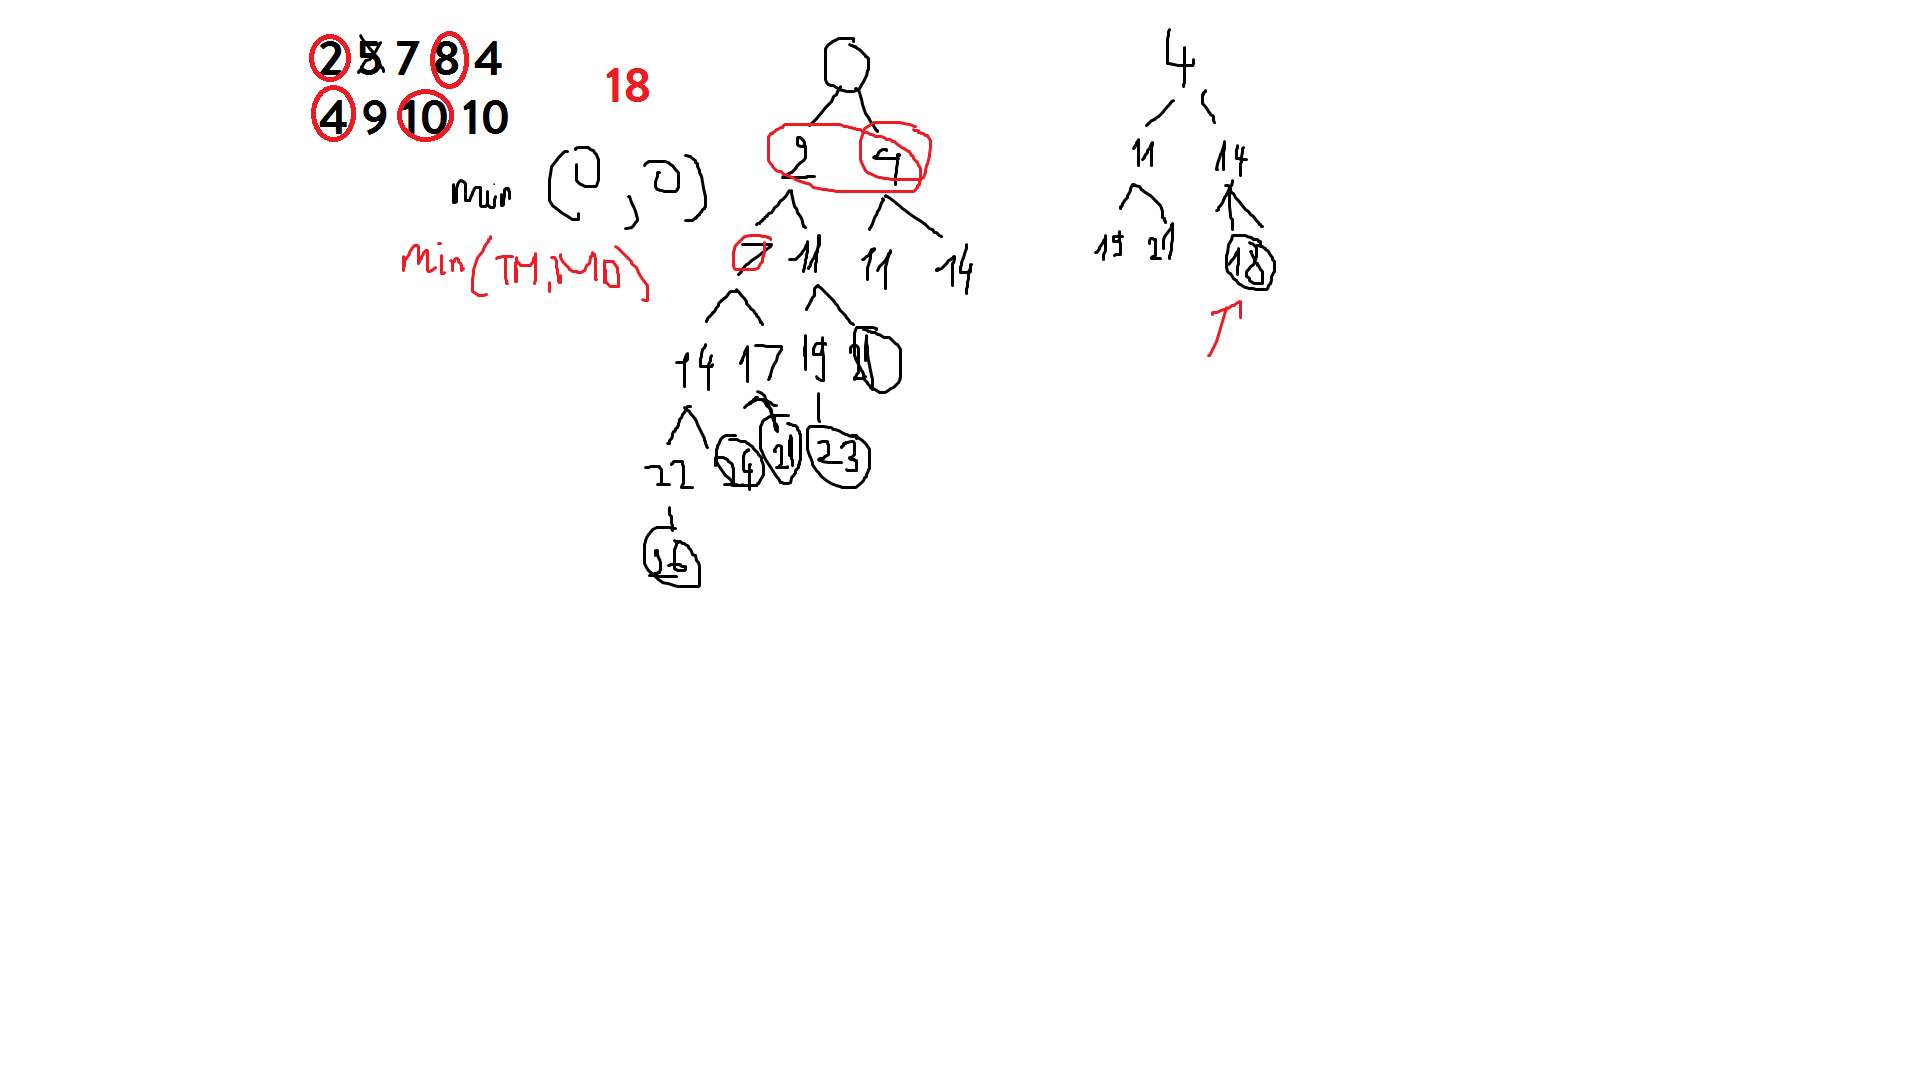 2 5 7 8 4
4 9 10 10
18
min (0, 0)
min(TM, MD)
2 4
7 11 11 14
14 17 19 21
22 24 21 23
26
4
11 14
19 21 18